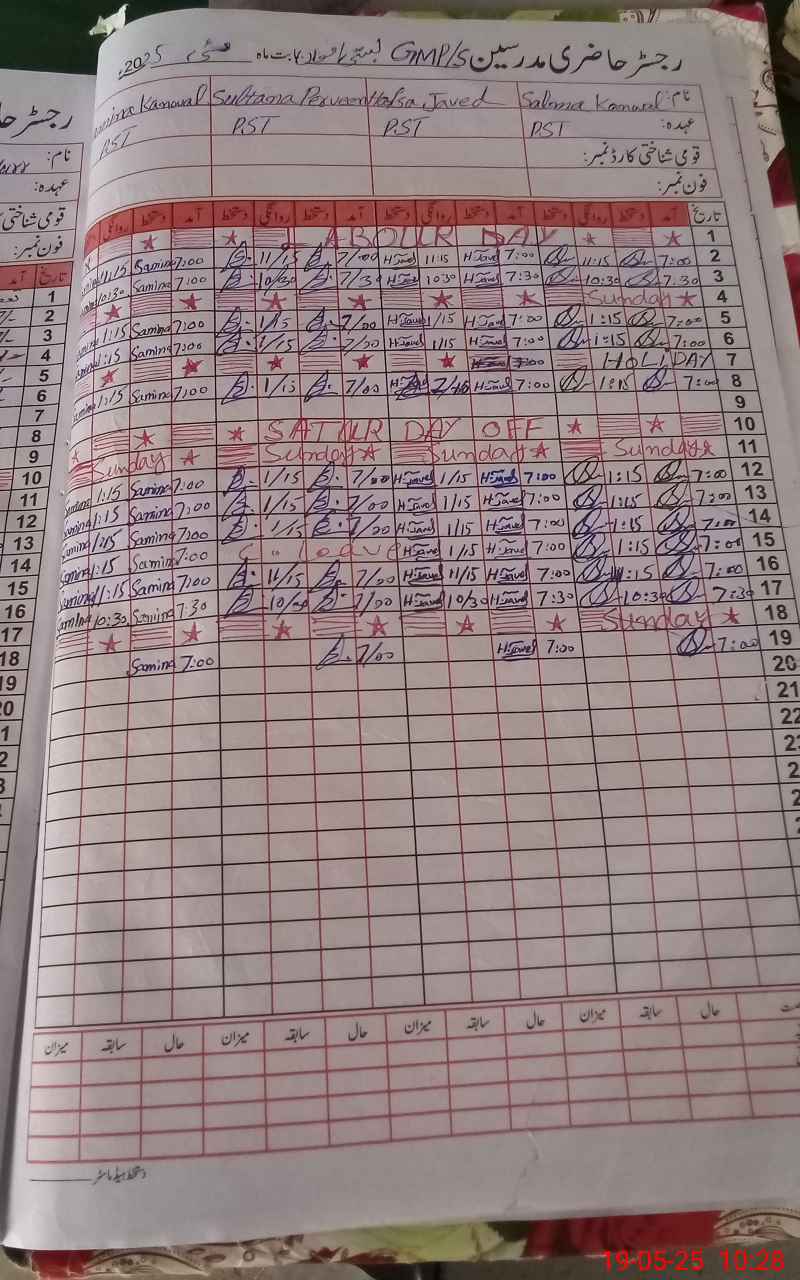 رجسٹر حاضری مدرسین GMP/S بابت ماہ مئی 2025ء
نام: Salma Kanwal Hafsa Javed Sultana Perveen Kanwal
عہدہ: PST PST PST PST
قومی شناختی کارڈ نمبر:
فون نمبر:
تاریخ آمد دستخط روانگی دستخط آمد دستخط روانگی دستخط آمد دستخط روانگی دستخط آمد دستخط روانگی
LABOUR DAY 1
11:15 Samina 7:00 11/15 7/00 H-Javed 11:15 H-Javed 7:00 11:15 7:00 2
10:30 Samina 7:00 10/30 7/30 H-Javed 10:30 H-Javed 7:30 10:30 7:30 3
Sunday 4
1:15 Samina 7:00 1/15 7/00 H-Javed 1/15 H-Javed 7:00 1:15 7:00 5
1:15 Samina 7:00 1/15 7/00 H-Javed 1/15 H-Javed 7:00 1:15 7:00 6
H-Javed 7:00 HOLIDAY 7
1:15 Samina 7:00 1/15 7/00 H-Javed H-Javed 7:00 1:15 7:00 8
9
SATUR DAY OFF 10
Sunday Sunday Sunday Sunday 11
1:15 Samina 7:00 1/15 7/00 H-Javed 1/15 H-Javed 7:00 1:15 7:00 12
1:15 Samina 7:00 1/15 7/00 H-Javed 1/15 H-Javed 7:00 1:15 7:00 13
1:15 Samina 7:00 1/15 7/00 H-Javed 1/15 H-Javed 7:00 1:15 7:00 14
1:15 Samina 7:00 C. leave H-Javed 1/15 H-Javed 7:00 1:15 7:00 15
11:15 Samina 7:00 11/15 7/00 H-Javed 11/15 H-Javed 7:00 :15 7:00 16
Samina 10:30 Samina 7:30 10/30 7/00 H-Javed 10/30 H-Javed 7:30 10:30 7:30 17
Sunday 18
Samina 7:00 7/00 H-Javed 7:00 7:00 19
20
21
22
حال سابقہ میزان حال سابقہ میزان حال سابقہ میزان حال سابقہ میزان
دستخط ہیڈ ماسٹر
رجسٹر
نام:
عہدہ:
قومی شناختی
فون نمبر:
تاریخ آمد
1
2
3
4
5
6
7
8
9
10
11
12
13
14
15
16
17
18
19
20
19-05-25 10:28